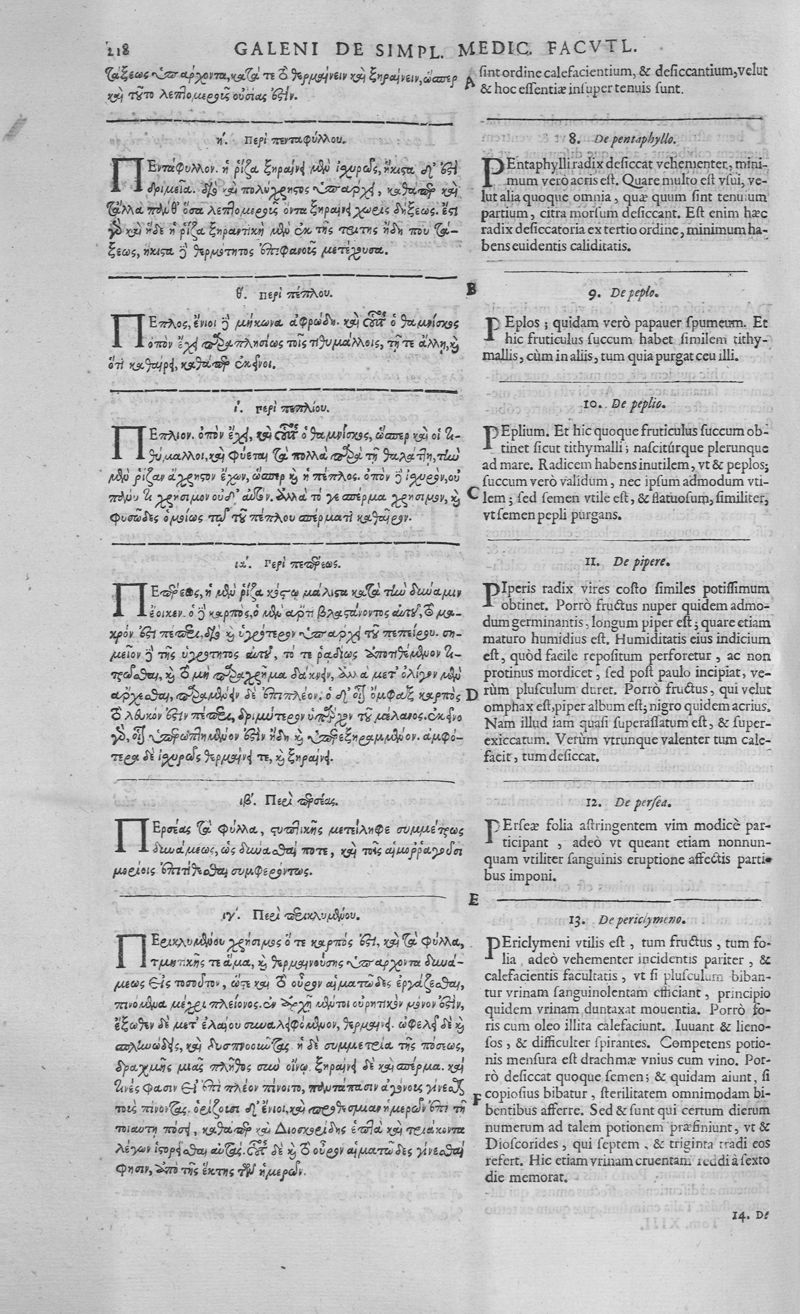 218 GALENI DE SIMPL. MEDIC. FACVTL.
τάξεως ὑπάρχοντα, κατά τε τὸ θερμαίνειν καὶ ξηραίνειν, ὥσπερ
καὶ τοῦτο λεπτομεροῦς οὐσίας ἐστίν.
η΄. Περὶ πενταφύλλου.
ΠΕντάφυλλον. ἡ ῥίζα ξηραίνει μὲν ἰσχυρῶς, ἥκιστα δ' ἐστὶ
δριμεῖα. διὸ καὶ πολύχρηστος ὑπάρχει, καθάπερ καὶ
τἄλλα πάνθ' ὅσα λεπτομερῆ ὄντα ξηραίνει χωρὶς δήξεως. ἔστι
γὰρ καὶ ἥδε ἡ ῥίζα ξηραντικὴ μὲν ἐκ τῆς τρίτης ἤδη που τά-
ξεως, ἥκιστα δὲ θερμότητος ἐπιφανοῦς μετέχουσα.
θ΄. Περὶ πέπλου.
ΠΕπλος, ἔνιοι δὲ μήκωνα ἀφρώδη. καὶ οὗτος ὁ θαμνίσκος
ὀπὸν ἔχει παραπλησίως τοῖς τιθυμάλλοις, τῇ τε ἄλλῃ, καὶ
ὅτι καθαίρει, καθάπερ ἐκεῖνοι.
ι΄. Περὶ πεπλίου.
ΠΕπλιον. ὀπὸν ἔχει, καὶ οὗτος ὁ θαμνίσκος, ὥσπερ καὶ οἱ τι-
θύμαλλοι, καὶ φύεται τὰ πολλὰ παρὰ τῇ θαλάττῃ, τὴν
μὲν ῥίζαν ἄχρηστον ἔχων, ὥσπερ καὶ ἡ πέπλος. ὀπὸν δὲ ἰσχυρὸν, οὐ
πάνυ τι χρήσιμον οὐδ' αὐτόν. ἀλλὰ τό γε σπέρμα χρήσιμον, καὶ
φυσῶδες ὁμοίως τῷ τοῦ πέπλου σπέρματι καθαῖρον.
ια΄. Περὶ πεπέρεως.
ΠΕπέρεως, ἡ μὲν ῥίζα κόστῳ μάλιστα κατὰ τὴν δύναμιν
ἔοικεν. ὁ δὲ καρπὸς, ὁ μὲν ἄρτι βλαστάνοντος αὐτοῦ, τὸ μα-
κρόν ἐστι πέπερι, διὸ καὶ ὑγρότερον ὑπάρχει τοῦ πεπείρου. ση-
μεῖον δὲ τῆς ὑγρότητος αὐτοῦ, τό τε ῥᾳδίως ἀποτιθέμενον τι-
τρᾶσθαι, καὶ τὸ μὴ παραχρῆμα δάκνειν, ἀλλὰ μετ' ὀλίγον μὲν
ἄρχεσθαι, παραμένειν δὲ ἐπιπλέον. ὁ δ' οἷον ὄμφαξ καρπὸς
τὸ λευκόν ἐστιν πέπερι, δριμύτερον ὑπάρχον τοῦ μέλανος. ἐκεῖνο
γὰρ, οἷον ὑπερωπτημένον ἐστὶν ἤδη καὶ ὑπερεξηραμμένον. ἀμφό-
τερα δὲ ἰσχυρῶς θερμαίνει τε, καὶ ξηραίνει.
ιβ΄. Περὶ περσέας.
ΠΕρσέας τὰ φύλλα, στυπτικῆς μετείληφε συμμέτρως
δυνάμεως, ὡς δύνασθαί ποτε, καὶ τοῖς αἱμοῤῥαγοῦσι
μορίοις ἐπιτίθεσθαι συμφερόντως.
ιγ΄. Περὶ περικλυμένου.
ΠΕρικλυμένου χρήσιμος ὅ τε καρπός ἐστι, καὶ τὰ φύλλα,
τμητικῆς τε ἅμα, καὶ θερμαινούσης ὑπάρχοντα δυνά-
μεως εἰς τοσοῦτον, ὥστε καὶ τὸ οὖρον αἱματῶδες ἐργάζεσθαι,
πινόμενα μέχρι πλείονος. ἐν ἀρχῇ μέντοι οὐρητικὸν μόνον ἐστὶν,
ἔξωθεν δὲ μετ' ἐλαίου συναλειφόμενον, θερμαίνει. ὠφελεῖ δὲ καὶ
σπληνώδεις, καὶ δυσπνοοῦντας. ἡ δὲ συμμετρία τῆς πόσεως,
δραχμῆς μιᾶς πλῆθος σὺν οἴνῳ. ξηραίνει δὲ καὶ σπέρμα. καὶ
τινές φασιν εἰ ἐπὶ πλέον πίνοιτο, παντάπασιν ἀγόνους γίνεσθαι
τοὺς πίνοντας. ὁρίζουσι δ' ἔνιοι, καὶ προθεσμίαν ἡμερῶν ἐπὶ τῇ
τοιαύτῃ πόσει, καθάπερ καὶ Διοσκορίδης ἑπτὰ καὶ τριάκοντα
λέγων ἱστορῆσθαι αὐτάς. οὗτος δὲ καὶ τὸ οὖρον αἱματῶδες γίνεσθαί
φησιν, ἀπὸ τῆς ἕκτης τῶν ἡμερῶν.
A
B
C
D
E
F
sint ordine calefacientium, & desiccantium, velut
& hoc essentiæ insuper tenuis sunt.
8. De pentaphyllo.
PEntaphylli radix desiccat vehementer, mini-
mum verò acris est. Quare multo est vsui, ve-
lut alia quoque omnia, quæ quum sint tenuium
partium, citra morsum desiccant. Est enim hæc
radix desiccatoria ex tertio ordine, minimum ha-
bens euidentis caliditatis.
9. De peplo.
PEplos; quidam verò papauer spumeum. Et
hic fruticulus succum habet similem tithy-
mallis, cùm in aliis, tum quia purgat ceu illi.
10. De peplio.
PEplium. Et hic quoque fruticulus succum ob-
tinet sicut tithymalli; nascitúrque plerunque
ad mare. Radicem habens inutilem, vt & peplos;
succum verò validum, nec ipsum admodum vti-
lem; sed semen vtile est, & flatuosum, similiter,
vt semen pepli purgans.
11. De pipere.
PIperis radix vires costo similes potissimum
obtinet. Porrò fructus nuper quidem admo-
dum germinantis, longum piper est; quare etiam
maturo humidius est. Humiditatis eius indicium
est, quòd facile repositum perforetur, ac non
protinus mordicet, sed post paulo incipiat, ve-
rùm plusculum duret. Porrò fructus, qui velut
omphax est, piper album est; nigro quidem acrius.
Nam illud iam quasi superassatum est, & super-
exiccatum. Verùm vtrunque valenter tum cale-
facit, tum desiccat.
12. De persea.
PErseæ folia astringentem vim modicè par-
ticipant, adeò vt queant etiam nonnun-
quam vtiliter sanguinis eruptione affectis parti-
bus imponi.
13. De periclymeno.
PEriclymeni vtilis est, tum fructus, tum fo-
lia adeò vehementer incidentis pariter, &
calefacientis facultatis, vt si plusculum biban-
tur vrinam sanguinolentam efficiant, principio
quidem vrinam duntaxat mouentia. Porrò fo-
ris cum oleo illita calefaciunt. Iuuant & lieno-
sos, & difficulter spirantes. Competens potio-
nis mensura est drachmæ vnius cum vino. Por-
rò desiccat quoque semen; & quidam aiunt, si
copiosius bibatur, sterilitatem omnimodam bi-
bentibus afferre. Sed & sunt qui certum dierum
numerum ad talem potionem præfiniunt, vt &
Dioscorides, qui septem, & triginta tradi eos
refert. Hic etiam vrinam cruentam reddi à sexto
die memorat.
14. De